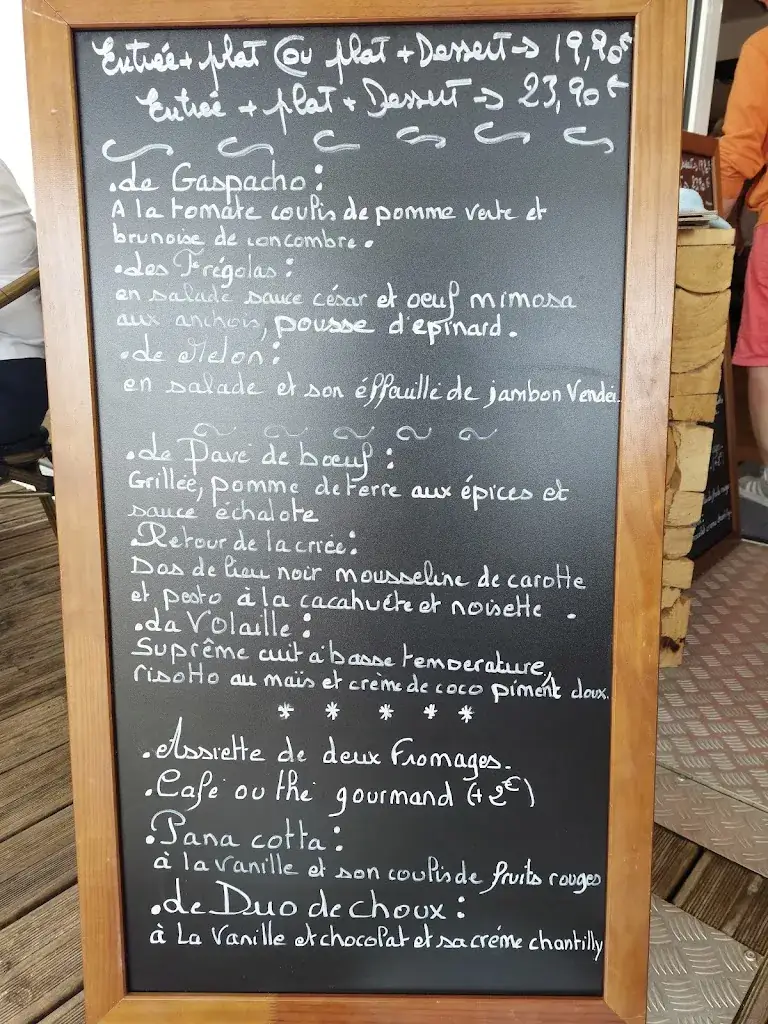 Entrée + plat ou plat + Dessert → 19,90€
Entrée + plat + Dessert → 23,90€
.Le Gaspacho :
A la tomate coulis de pomme verte et
brunoise de concombre.
.Les Frégolas :
en salade sauce césar et oeuf mimosa
aux anchois, pousse d'epinard.
.Le Melon :
en salade et son éffeuillé de jambon Vendéi.
.Le Pavé de bœuf :
Grillée, pomme de terre aux épices et
sauce échalote
.Retour de la criée :
Dos de lieu noir mousseline de carotte
et pesto à la cacahuéte et noisette .
.La Volaille :
Suprême cuit à basse temperature,
risotto au maïs et crème de coco piment doux.
* * * * *
.Assiette de deux Fromages.
.Café ou thé gourmand (+2€)
.Pana cotta :
à la vanille et son coulis de fruits rouges
.Le Duo de choux :
à La Vanille et chocolat et sa créme chantilly